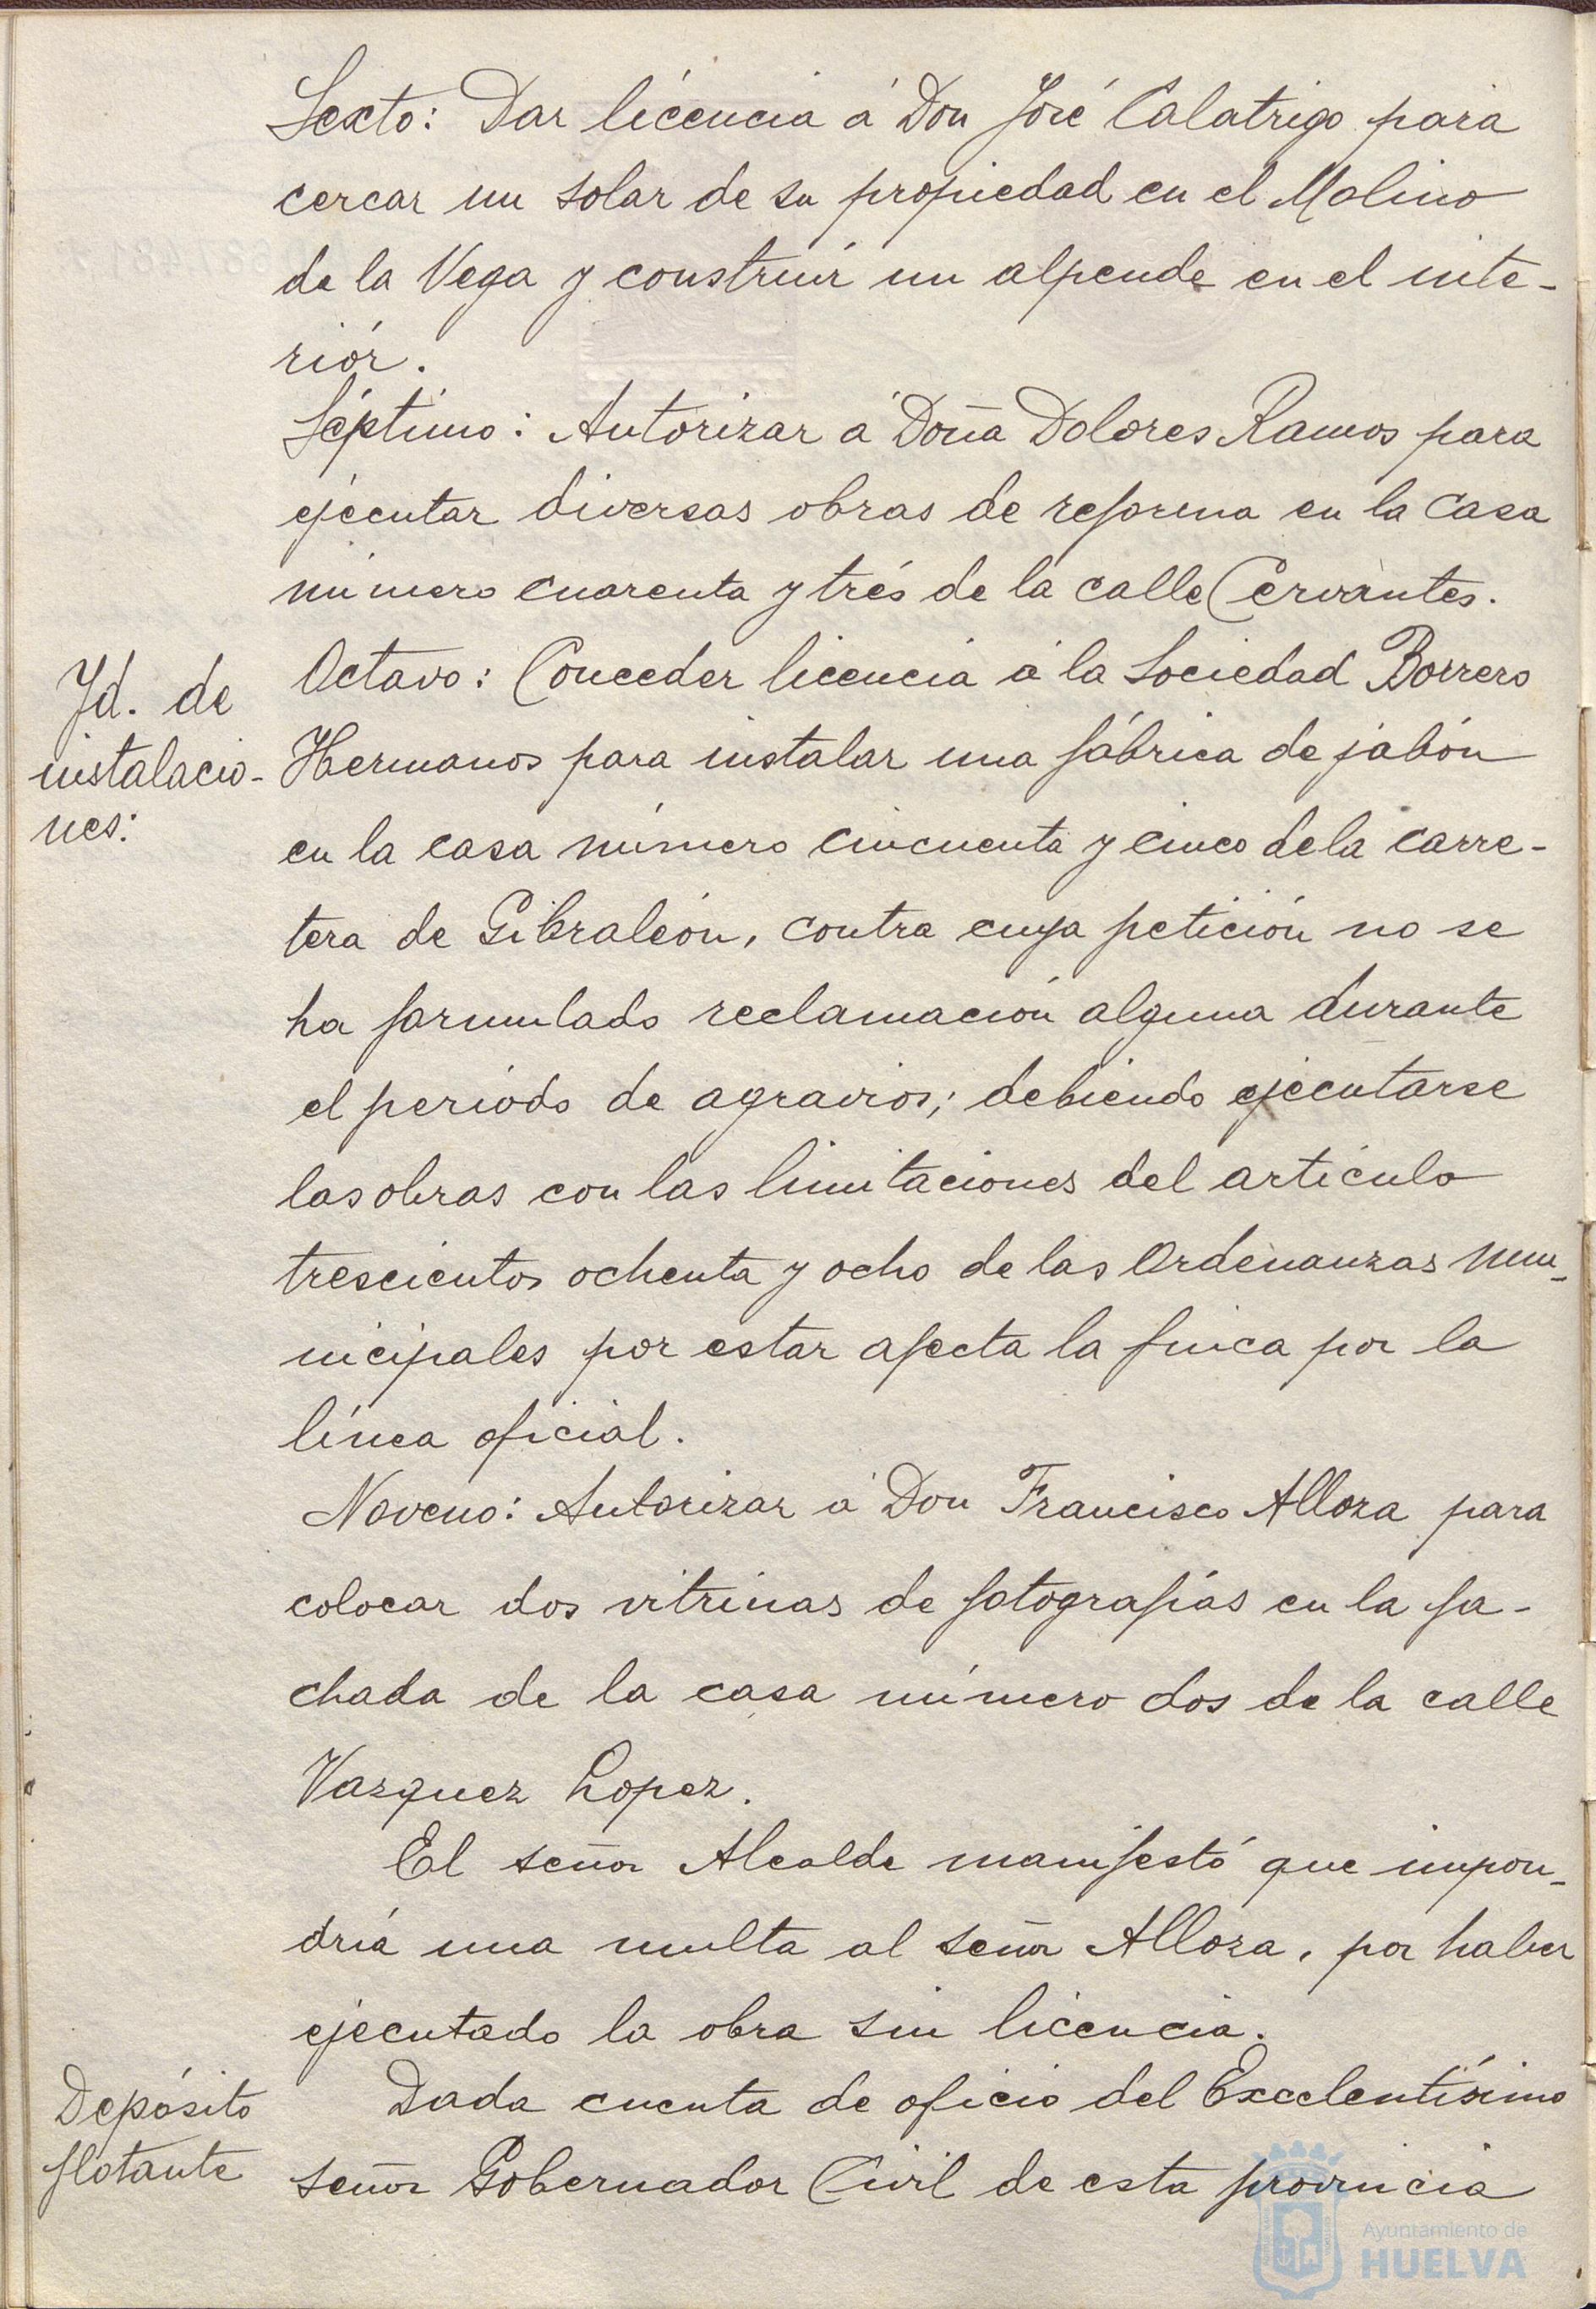 Sexto: Dar licencia á Don José Calatrigo para
cercar un solar de su propiedad en el Molino
de la Vega y construir un alpende en el inte-
riór.
Séptimo: Autorizar á Doña Dolores Ramos para
ejecutar diversas obras de reforma en la casa
número cuarenta y trés de la calle Cervantes.
Id. de
instalacio-
nes:
Octavo: Conceder licencia á la Sociedad Borrero
Hermanos para instalar una fábrica de jabón
en la casa número cincuenta y cinco de la carre-
tera de Gibraleón, contra cuya petición no se
ha formulado reclamación alguna durante
el periódo de agravios; debiendo ejecutarse
las obras con las limitaciones del artículo
trescientos ochenta y ocho de las Ordenanzas Mu-
nicipales por estar afecta la finca por la
línea oficial.
Noveno: Autorizar á Don Francisco Alloza para
colocar dos vitrinas de fotografías en la fa-
chada de la casa número dos de la calle
Vazquez Lopez.
El señor Alcalde manifestó que impon-
dría una multa al señor Alloza, por haber
ejecutado la obra sin licencia.
Depósito
flotante
Dada cuenta de oficio del Excelentísimo
señor Gobernador Civil de esta provincia
Ayuntamiento de
HUELVA